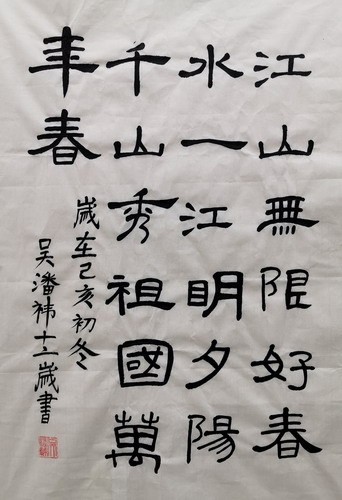 江山無限好春
水一江明夕陽
千山秀祖國萬
年春
歲在己亥初冬
吴潘祎十二歲書